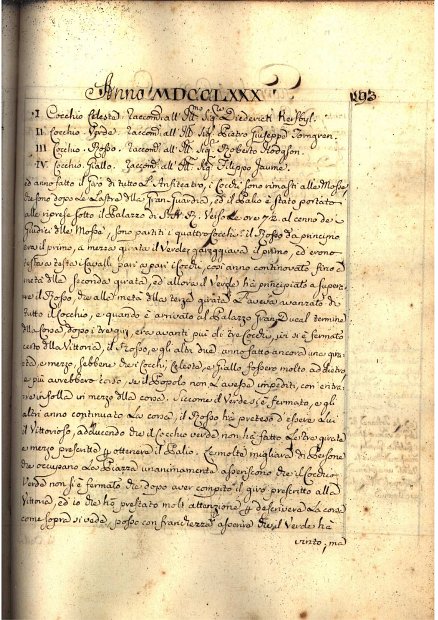 Anno MDCCLXXX
193
I Cocchio Celeste Raccom: all' Ill.mo Sig.re Diederich
II Cocchio Verde. Raccom: all' Ill.mo Sig.re Pietro Giuseppe Torngren.
III Cocchio Rosso. Raccom: all' Ill.mo Sig.re Roberto Hodgson.
IV Cocchio Giallo. Raccom: all' Ill.mo Sig.re Filippo Jaume.
ed anno fatto il Giro di tutto L'Anfiteatro, i Cocchi sono rimasti alle Mosse
che sono dopo le Lastre della Gran Guardia, ed il Palio è stato portato
alle riprese sotto il Palazzo di S.A.R. Verso le ore 7½ al cenno dei
Giudici delle Mosse, sono partiti i quattro Cocchi: il Rosso da principio
era il primo, a mezza girata il Verde gareggiava il primo, ed erono
testa a testa i Cavalli, pari a pari i Cocchi, così anno continovato fino a
metà della seconda girata, ed allora il Verde hà principiato a supera-
re il Rosso, che alla metà della terza girata L'aveva avanzato di
tutto il Cocchio, e quando è arrivato al Palazzo Gran-Ducal termine
della Corsa, dopo i tre giri, era avanti più di tre Cocchi, ivi si è fermato
certo della Vittoria, il Rosso, e gli altri due anno fatto ancora una gira-
ta, e mezzo, sebbene che i Cocchi, Celeste, e Giallo fossero molto addietro
e più avrebbero corso, se il Popolo non L'avesse impediti, con entra-
re in folla in mezzo della corsa. Siccome il Verde si è fermato, e gli
altri anno continuato La corsa, il Rosso hà preteso d'essere Lui
il Vittorioso, adducendo che il Cocchio verde non hà fatto Le tre girate
e mezzo prescritte p ottenere il Palio. Le molte migliara di Persone
che occupano La Piazza unanimamente asseriscono che il Cocchio
Verde non si è fermato che dopo aver compito il giro prescritto alla
Vittoria, ed io che hò prestato molta attenzione p descrivere La corsa
come sopra si vede, posso con franchezza asserire che il Verde hà
vinto; ma